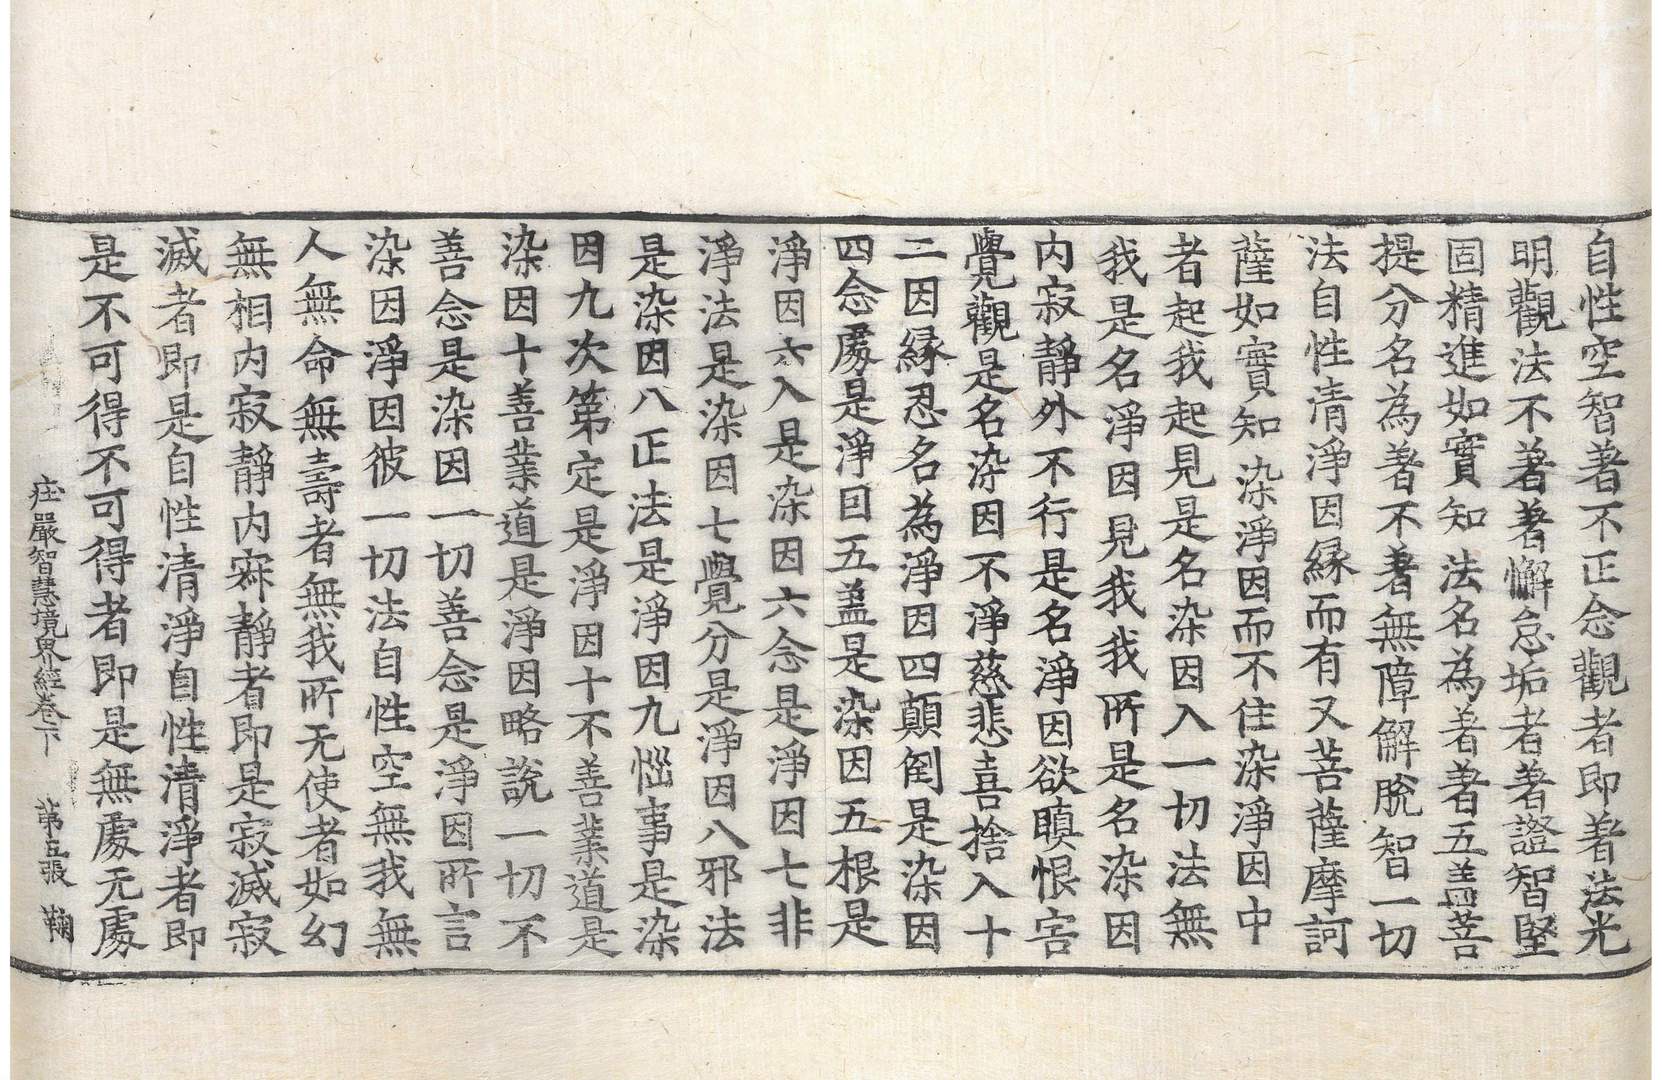 自性空智著不正念觀者即著法光
明觀法不著著懈怠垢者著證智堅
固精進如實知法名為著著五蓋菩
提分名為著不著無障解脫智一切
法自性清淨因緣而有又菩薩摩訶
薩如實知染淨因而不住染淨因中
者起我起見是名染因入一切法無
我是名淨因見我我所是名染因
内寂靜外不行是名淨因欲瞋恨害
覺觀是名染因不淨慈悲喜捨入十
二因緣忍名為淨因四顛倒是染因
四念處是淨因五盖是染因五根是
淨因六入是染因六念是淨因七非
淨法是染因七覺分是淨因八邪法
是染因八正法是淨因九惱事是染
因九次第定是淨因十不善業道是
染因十善業道是淨因略說一切不
善念是染因一切善念是淨因所言
染因淨因彼一切法自性空無我無
人無命無壽者無我所无使者如幻
無相内寂靜内寂靜者即是寂滅寂
滅者即是自性清淨自性清淨者即
是不可得不可得者即是無處无處
庄嚴智慧境界經卷下　第五張　鞠